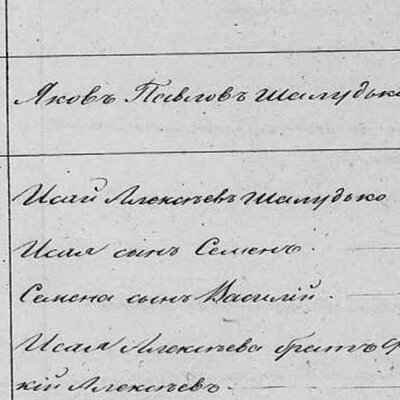 Яковъ Павловъ Шалудько
Исай Алексѣевъ Шалудько
Исая сынъ Семенъ.
Семена сынъ Василій.
Исая Алексѣева братъ
кій Алексѣевъ.